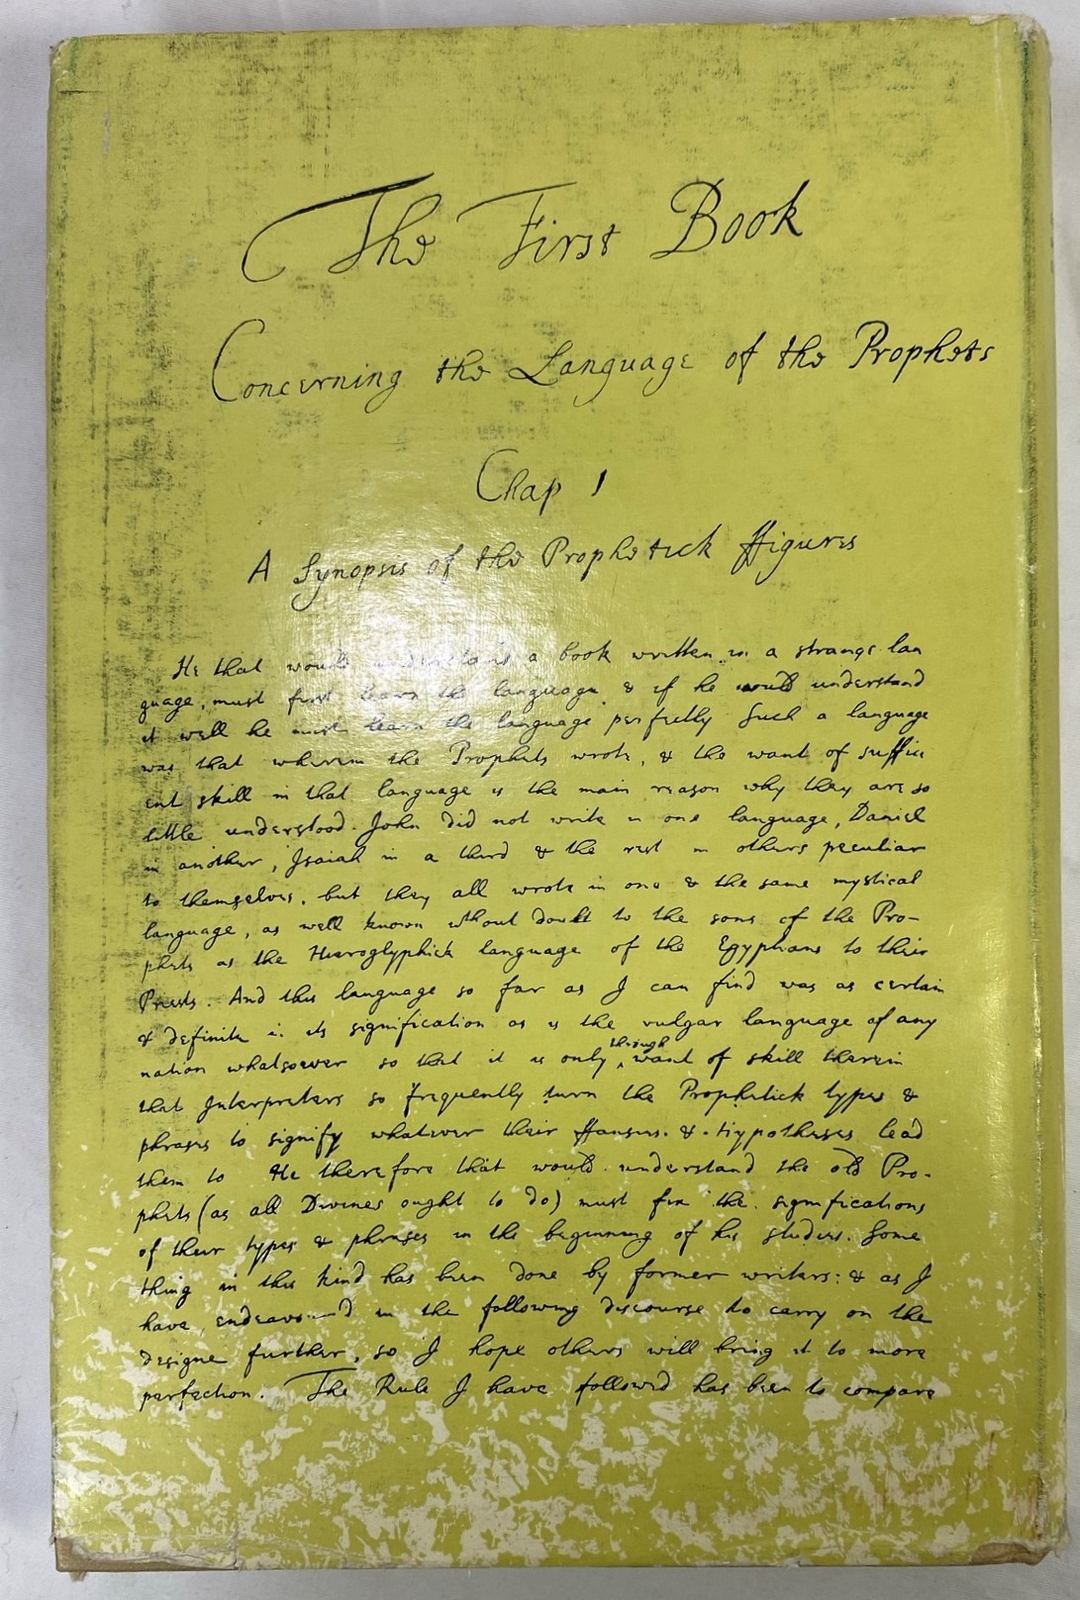 The First Book
Concerning the Language of the Prophets
Chap 1
A Synopsis of the Prophetick ffigures
He that would understand a book written in a strange lan
guage, must first learn the language & if he would understand
it well he must learn the language perfectly Such a language
was that wherein the Prophets wrote, & the want of suffici
ent skill in that language is the main reason why they are so
little understood. John did not write in one language, Daniel
in another, Isaiah in a third & the rest in others peculiar
to themselves, but they all wrote in one & the same mystical
language, as well known wthout doubt to the sons of the Pro-
phets as the Hieroglyphick language of the Egyptians to their
Priests. And this language so far as I can find was as certain
& definite in its signification as is the vulgar language of any
nation whatsoever so that it is only through want of skill therein
that Interpreters so frequently turn the Prophetick types &
phrases to signify whatever their ffansies & Hypotheses lead
them to He therefore that would understand the old Pro-
phets (as all Divines ought to do) must fix the significations
of their types & phrases in the beginning of his studies. Some
thing in this kind has been done by former writers: & as I
have endeavoured in the following discourse to carry on the
designe further, so I hope others will bring it to more
perfection. The Rule I have followed has been to compare